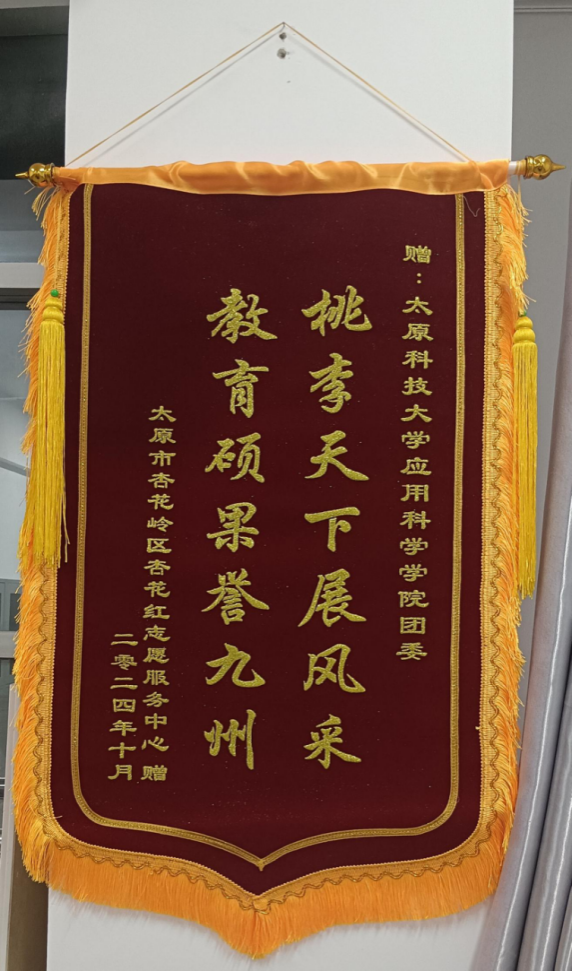 赠：太原科技大学应用科学学院团委
桃李天下展风采
教育硕果誉九州
太原市杏花岭区杏花红志愿服务中心 赠
二零二四年十月